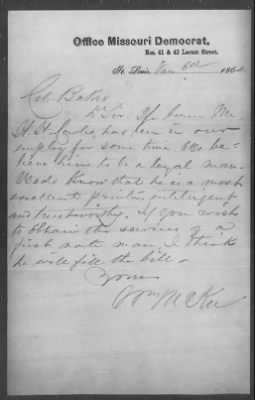 Office Missouri Democrat,
Nos. 41 & 43 Locust Street.
St. Louis 6th 186
Col. Baker
Sir:
has been in our
employ for some time. We be-
lieve him to be a loyal man.
We do know that he is a most
excellent printer, intelligent
and trustworthy. If you wish
to obtain the services of a
first rate man, I think
he will fill the bill.
Yours
Wm McKee